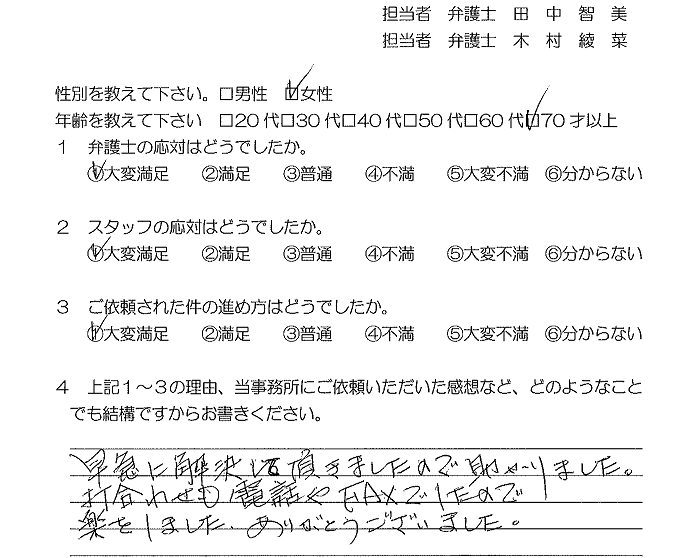 担当者 弁護士 田 中 智 美
担当者 弁護士 木 村 綾 菜
性別を教えて下さい。☐男性 ☑女性
年齢を教えて下さい ☐20代☐30代☐40代☐50代☐60代☑70才以上
1 弁護士の応対はどうでしたか。
①大変満足 ②満足 ③普通 ④不満 ⑤大変不満 ⑥分からない
2 スタッフの応対はどうでしたか。
①大変満足 ②満足 ③普通 ④不満 ⑤大変不満 ⑥分からない
3 ご依頼された件の進め方はどうでしたか。
①大変満足 ②満足 ③普通 ④不満 ⑤大変不満 ⑥分からない
4 上記1~3の理由、当事務所にご依頼いただいた感想など、どのようなこと
でも結構ですからお書きください。
早急に解決して頂きましたので助かりました。
打合わせも電話やFAXでしたので
楽をしました。ありがとうございました。